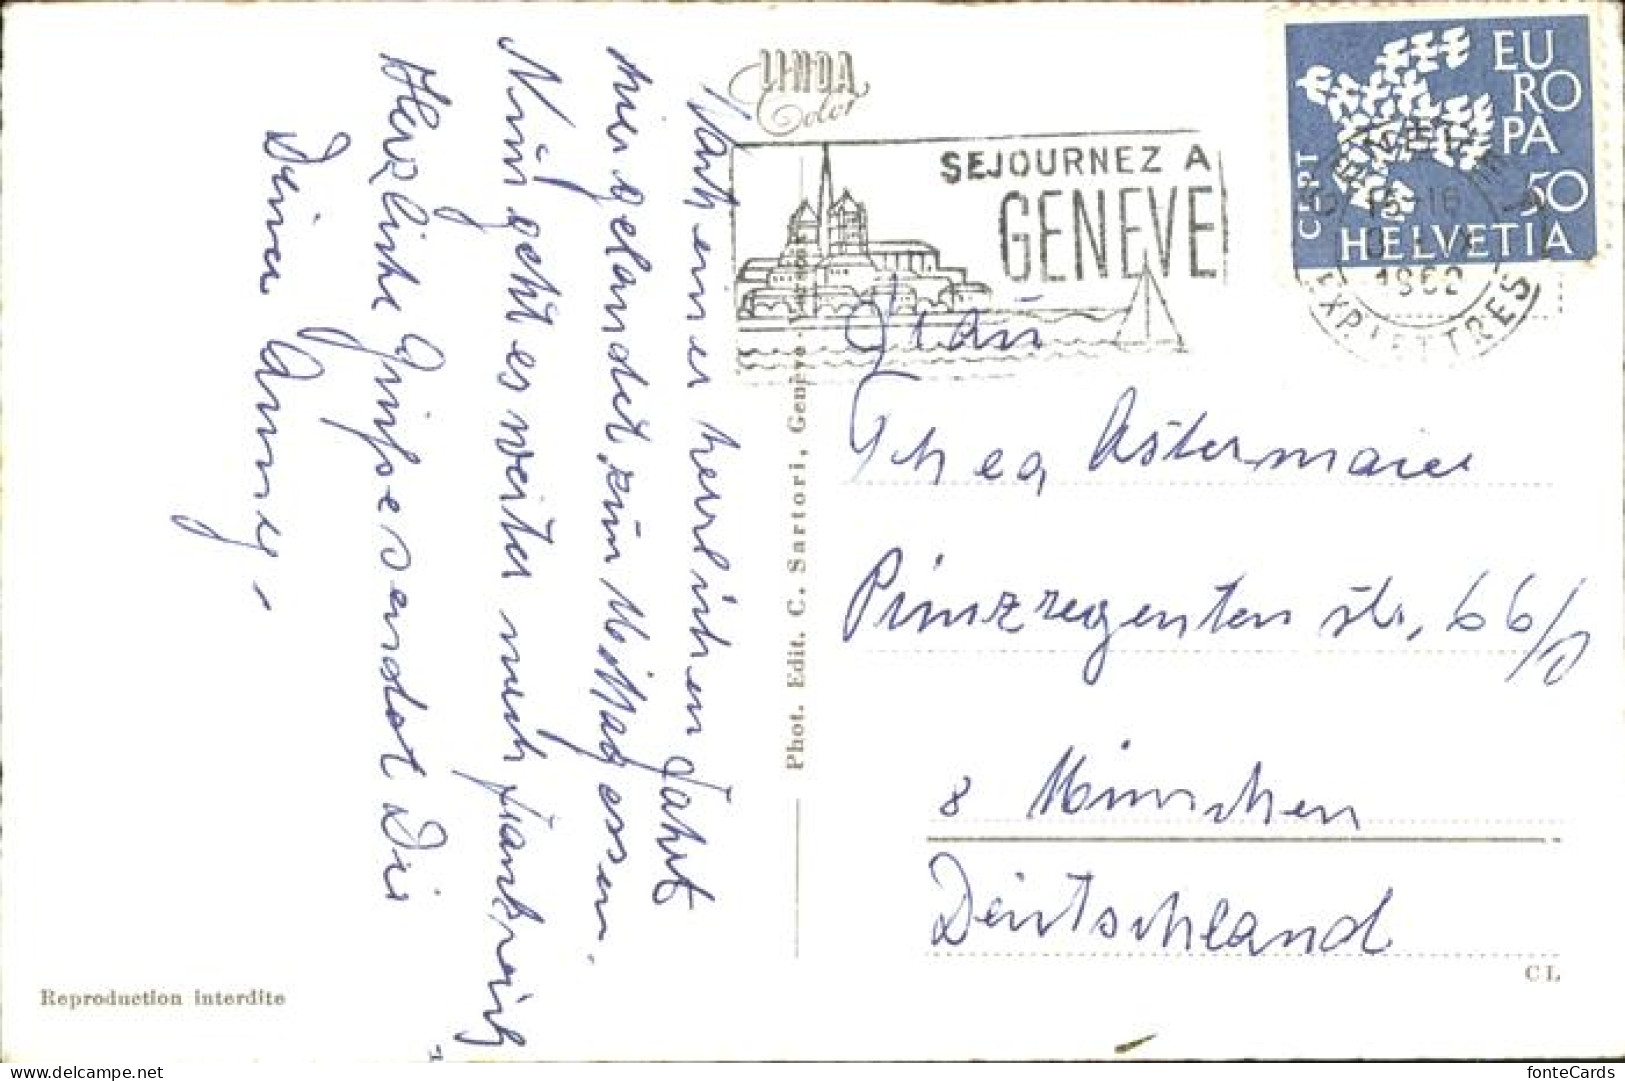 LINDA
Color
SEJOURNEZ A
GENEVE
EU
RO
PA
50
CEPT
HELVETIA
15-16
1962
EXP. LETTRES
Nach einer herrlichen Fahrt
hier gelandet zum Mittagessen.
Nun geht es weiter nach Frankreich
Herzliche Grüße sendet Dir
Deine Anney.
Phot. Edit. C. Sartori, Genève
Frau
Thea Astermaier
Prinzregentenstr. 66/
8 München
Deutschland
Reproduction interdite
CL
fonteCards